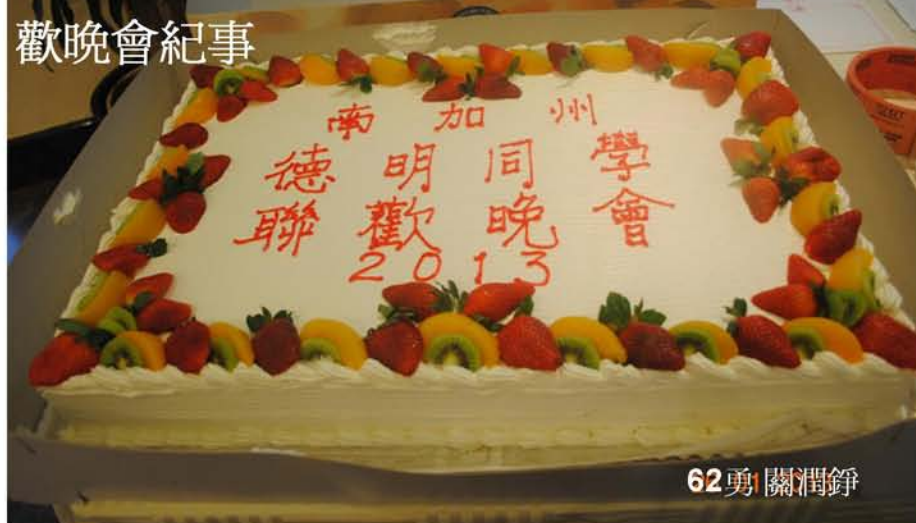 歡晚會紀事
南加州
德明同學
聯歡晚會
2013
62勇 關潤錚